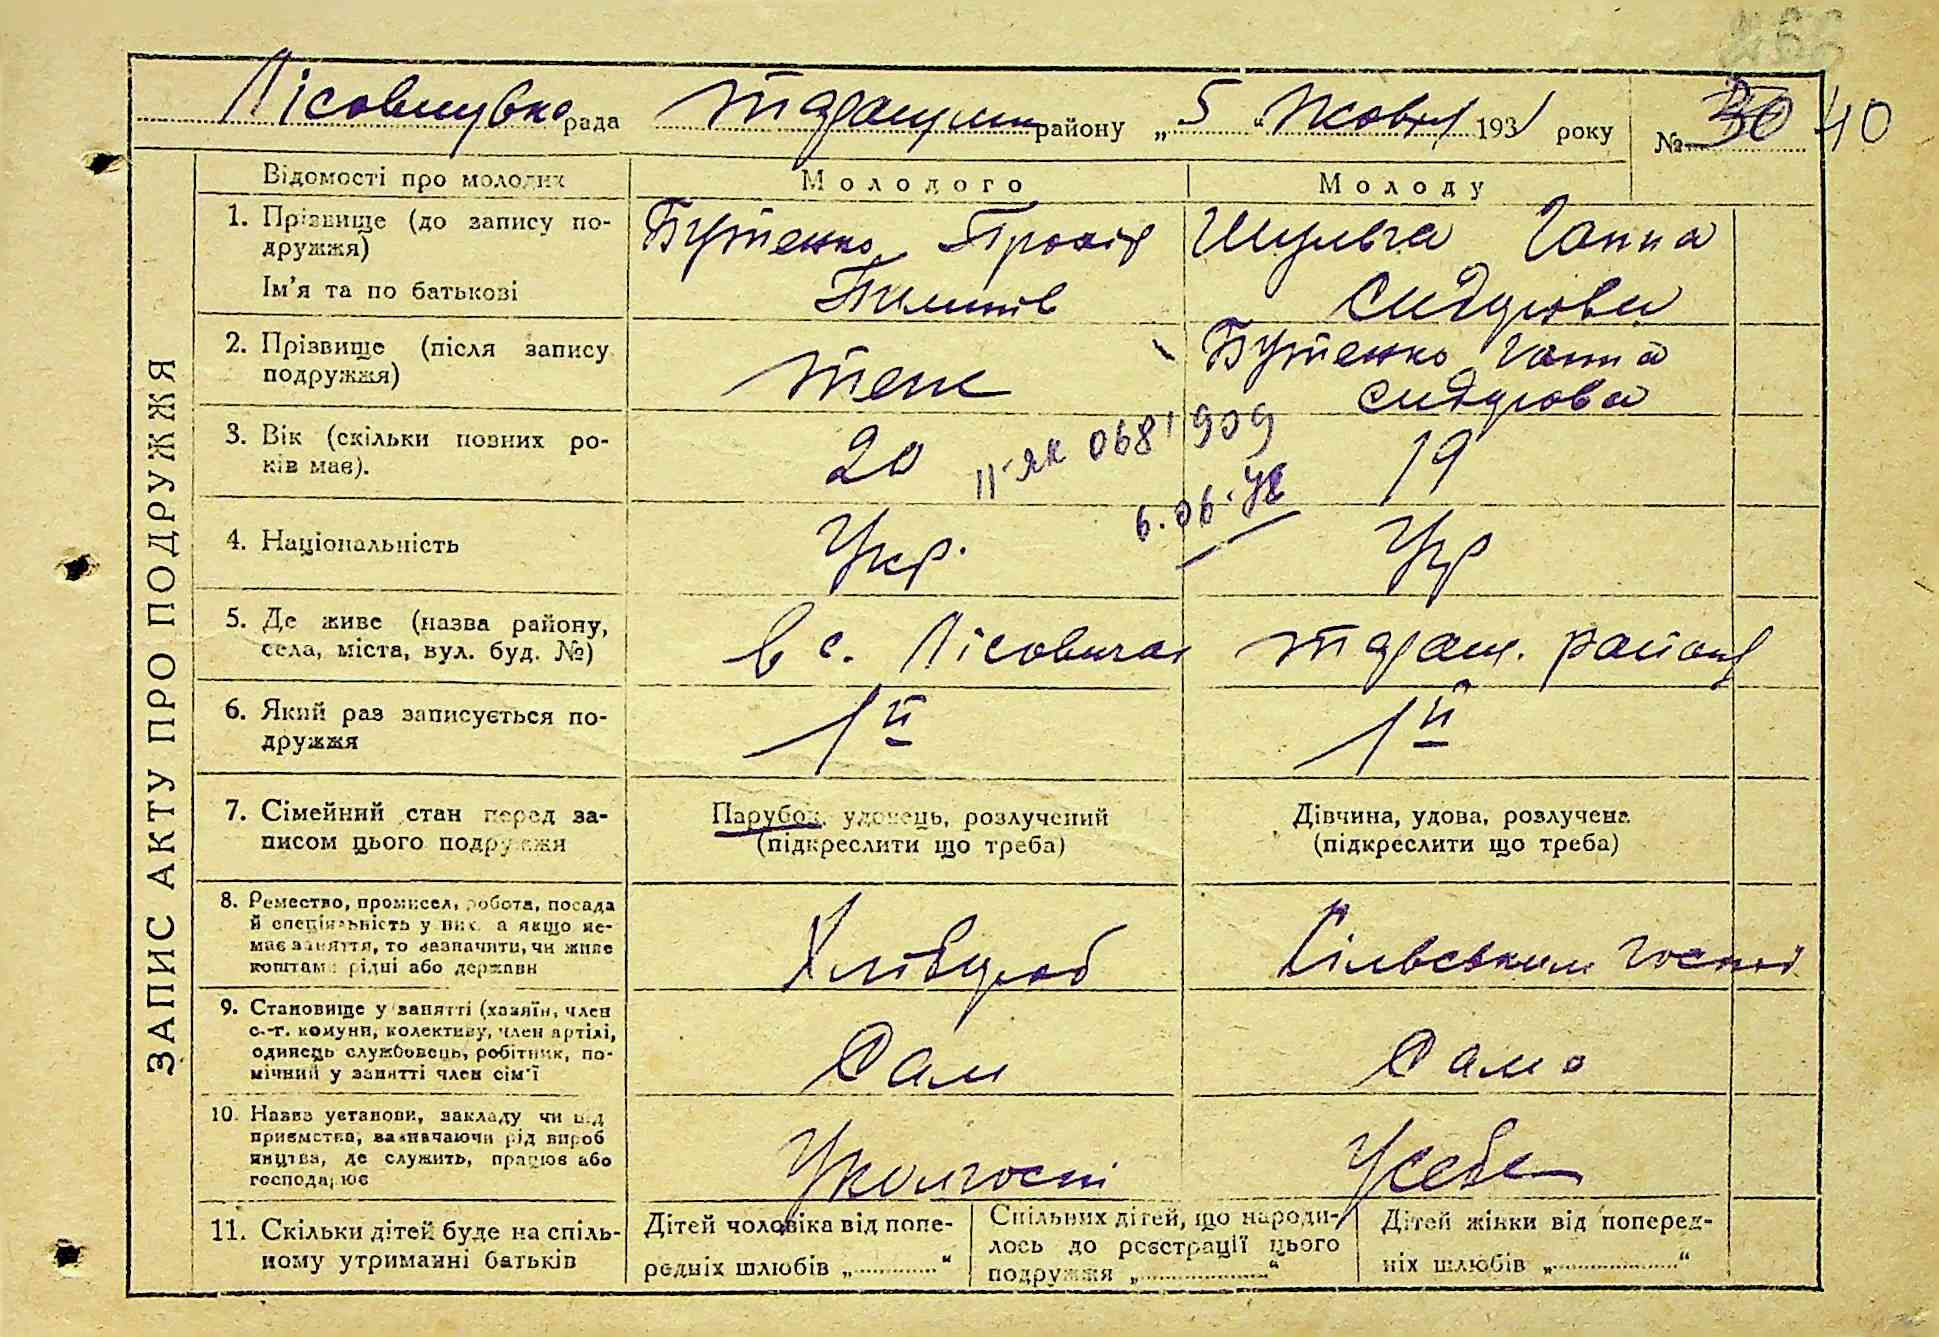 ЗАПИС АКТУ ПРО ПОДРУЖЖЯ
рада району „5“ Жовт 1931 року № 30 40
Відомості про молодих
Молодого
Молоду
1. Прізвище (до запису по-
дружжя)
Ім'я та по батькові
Бутенко
Шульга Ганна
Сидорова
2. Прізвище (після запису
подружжя)
Теж
Бутенко Ганна
Сидорова
3. Вік (скільки повних ро-
ків має).
20
19
II-ЯК 0681909
4. Національність
Укр.
Укр
5. Де живе (назва району,
села, міста, вул. буд. №)
в с. Лісовичах
Таращ. району
6. Який раз записується по-
дружжя
1й
1й
7. Сімейний стан перед за-
писом цього подружжя
Парубок, удовець, розлучений
(підкреслити що треба)
Дівчина, удова, розлучена
(підкреслити що треба)
8. Ремество, промисел, робота, посада
й спеціяльність у них, а якщо не-
має заняття, то зазначити, чи живе
коштами рідні або держави
Хлібороб
9. Становище у занятті (хазяїн, член
с.-г. комуни, колективу, член артілі,
одинець службовець, робітник, по-
мічний у занятті член сім'ї
Сам
Сама
10. Назва установи, закладу чи під
приємства, зазначаючи рід вироб
ництва, де служить, працює або
господарює
У колгоспі
У себе
11. Скільки дітей буде на спіль-
ному утриманні батьків
Дітей чоловіка від попе-
редніх шлюбів „ “
Спільних дітей, що народи-
лось до реєстрації цього
подружжя „ “
Дітей жінки від поперед-
ніх шлюбів „ “